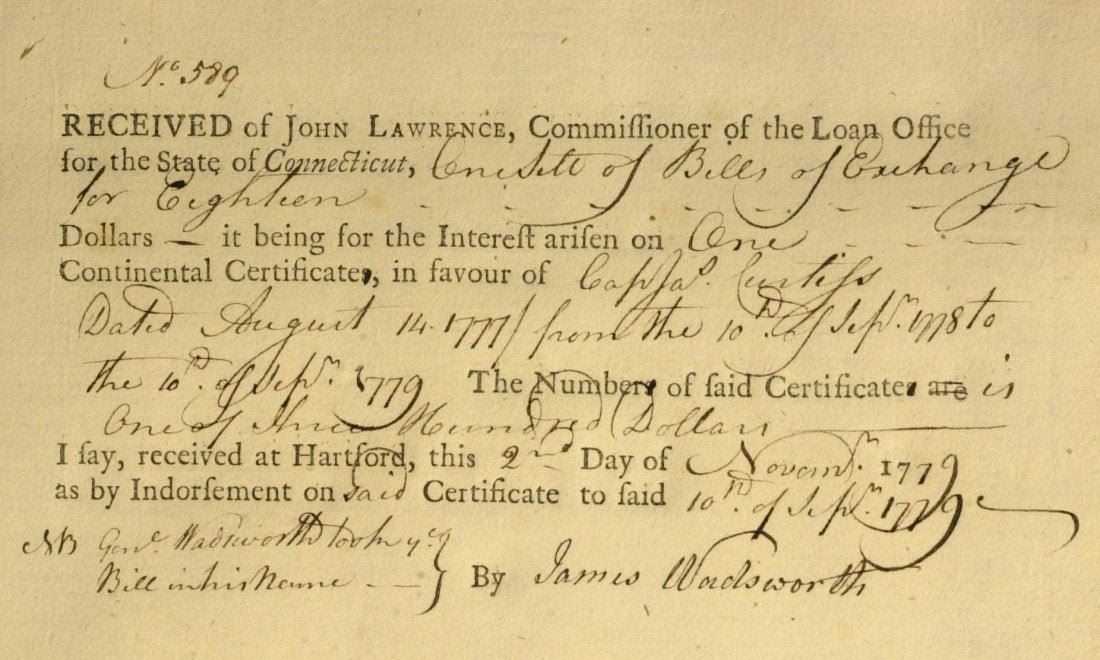 No. 589
RECEIVED of JOHN LAWRENCE, Commiſſioner of the Loan Office
for the State of Connecticut, One Sett of Bills of Exchange
for Eighteen - - - - - - -
Dollars — it being for the Intereſt ariſen on One - - -
Continental Certificate, in favour of Cap Ja.s Curtiſs
Dated August 14. 1777 / from the 10th. of Sepr. 1778 to
the 10th. of Sepr. 1779 The Number of ſaid Certificate are is
One of three Hundred Dollars
I ſay, received at Hartford, this 2nd Day of Novemr. 1779
as by Indorſement on said Certificate to ſaid 10th. of Sepr. 1779
NB Genl. Wadsworth took ye
Bill in his Name — } By James Wadsworth